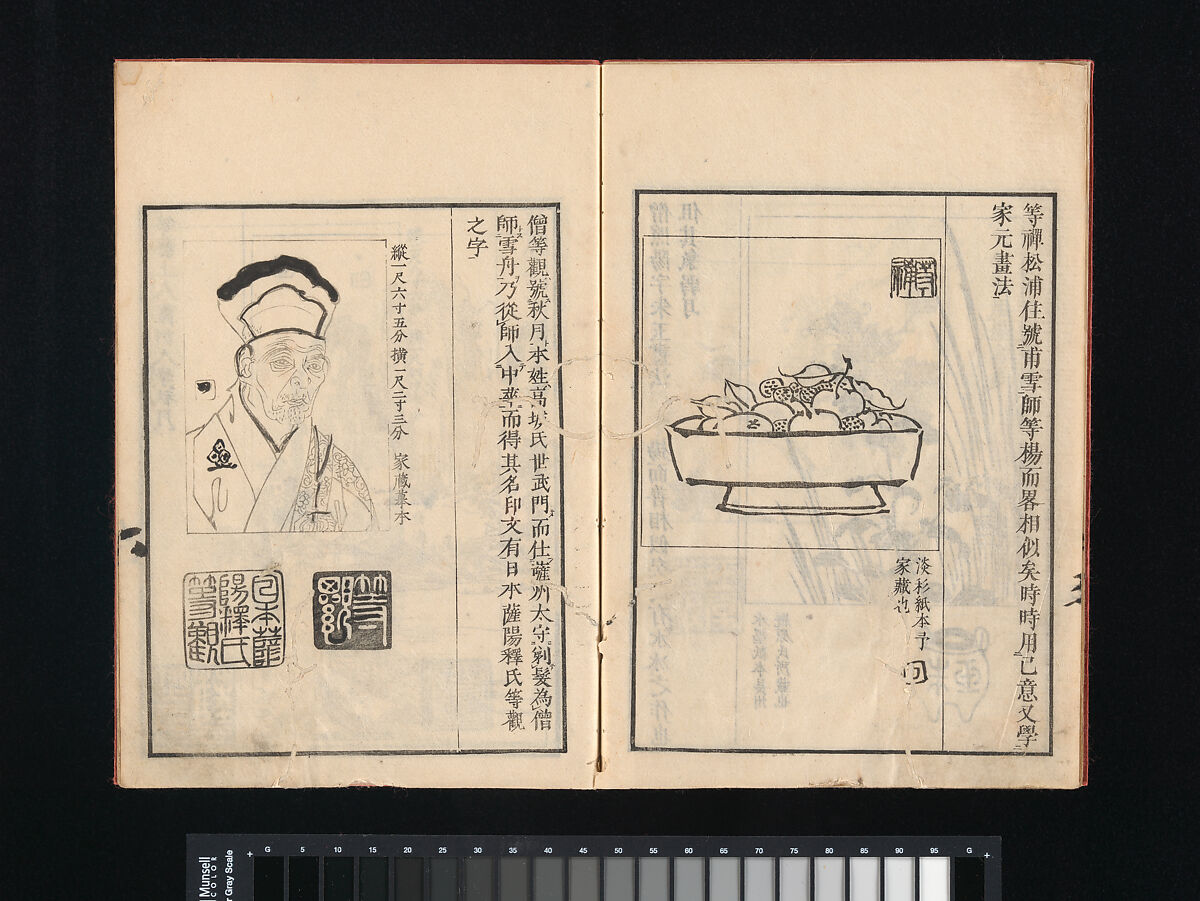 等禪松浦住號甫雪師等楊而畧相似矣時時用己意又學
家元畫法
等禪
淡彩紙本予
家藏也
僧等觀號秋月本姓高城氏世武門而仕薩州太守剃髮為僧
師雪舟乃從師入中華而得其名印文有日本薩陽釋氏等觀
之字
縱一尺六寸五分 橫一尺二寸三分 家藏摹本
等觀
日本薩
陽釋氏
等觀
Munsell
COLOR
Gray Scale
G 5 10 15 20 30 40 50 60 70 75 80 85 90 95 G